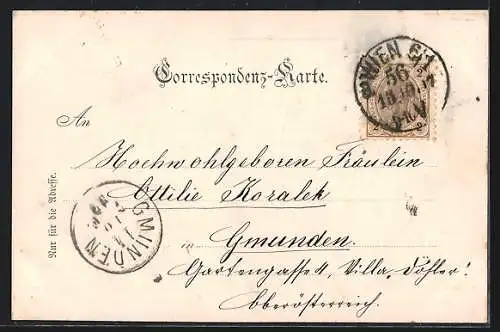 Correspondenz-Karte.
WIEN 6/1
56
An
Hochwohlgeboren Fräulein
Ottilie Koralek
in Gmunden.
Gartengasse 4, Villa „Föhler“
Oberösterreich.
Nur für die Adresse.
GMUNDEN